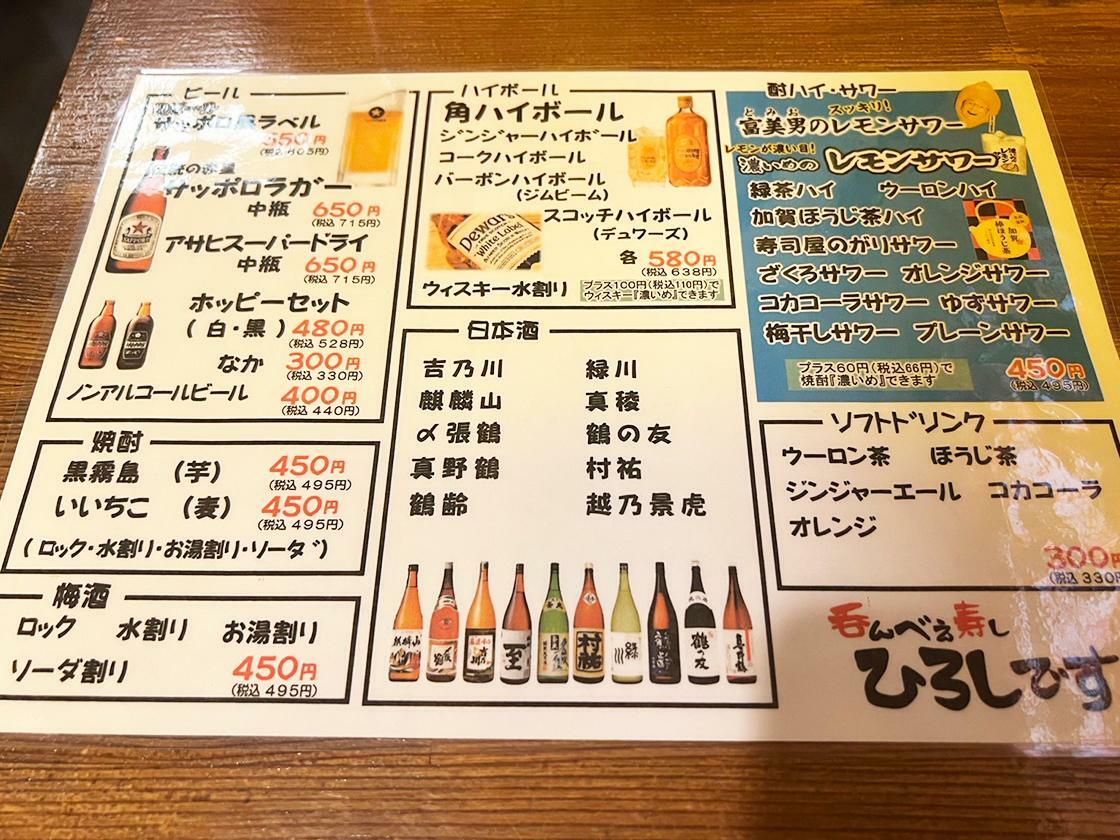 ビール
サッポロ黒ラベル
550円
(税込605円)
伝統の赤星
サッポロラガー
中瓶 650円
(税込715円)
アサヒスーパードライ
中瓶 650円
(税込715円)
ホッピーセット
(白・黒) 480円
(税込528円)
なか 300円
(税込330円)
ノンアルコールビール 400円
(税込440円)
焼酎
黒霧島 (芋) 450円
(税込495円)
いいちこ (麦) 450円
(税込495円)
(ロック・水割り・お湯割り・ソーダ)
梅酒
ロック 水割り お湯割り
ソーダ割り 450円
(税込495円)
ハイボール
角ハイボール
ジンジャーハイボール
コークハイボール
バーボンハイボール
(ジムビーム)
スコッチハイボール
(デュワーズ)
各 580円
(税込638円)
ウィスキー水割り
プラス100円(税込110円)で
ウィスキー『濃いめ』できます
Dewar's
White Label
日本酒
吉乃川 緑川
麒麟山 真稜
〆張鶴 鶴の友
真野鶴 村祐
鶴齢 越乃景虎
麒麟山
村祐
緑川
鶴の友
酎ハイ・サワー
スッキリ!
とみお
富美男のレモンサワー
レモンが濃い目!
濃いめの レモンサワー
緑茶ハイ ウーロンハイ
加賀ほうじ茶ハイ
寿司屋のがりサワー
ざくろサワー オレンジサワー
コカコーラサワー ゆずサワー
梅干しサワー プレーンサワー
プラス60円(税込66円)で
焼酎『濃いめ』できます
450円
(税込495円)
加賀
棒ほうじ茶
ソフトドリンク
ウーロン茶 ほうじ茶
ジンジャーエール コカコーラ
オレンジ
300円
(税込330円
呑んべえ寿し
ひろしです